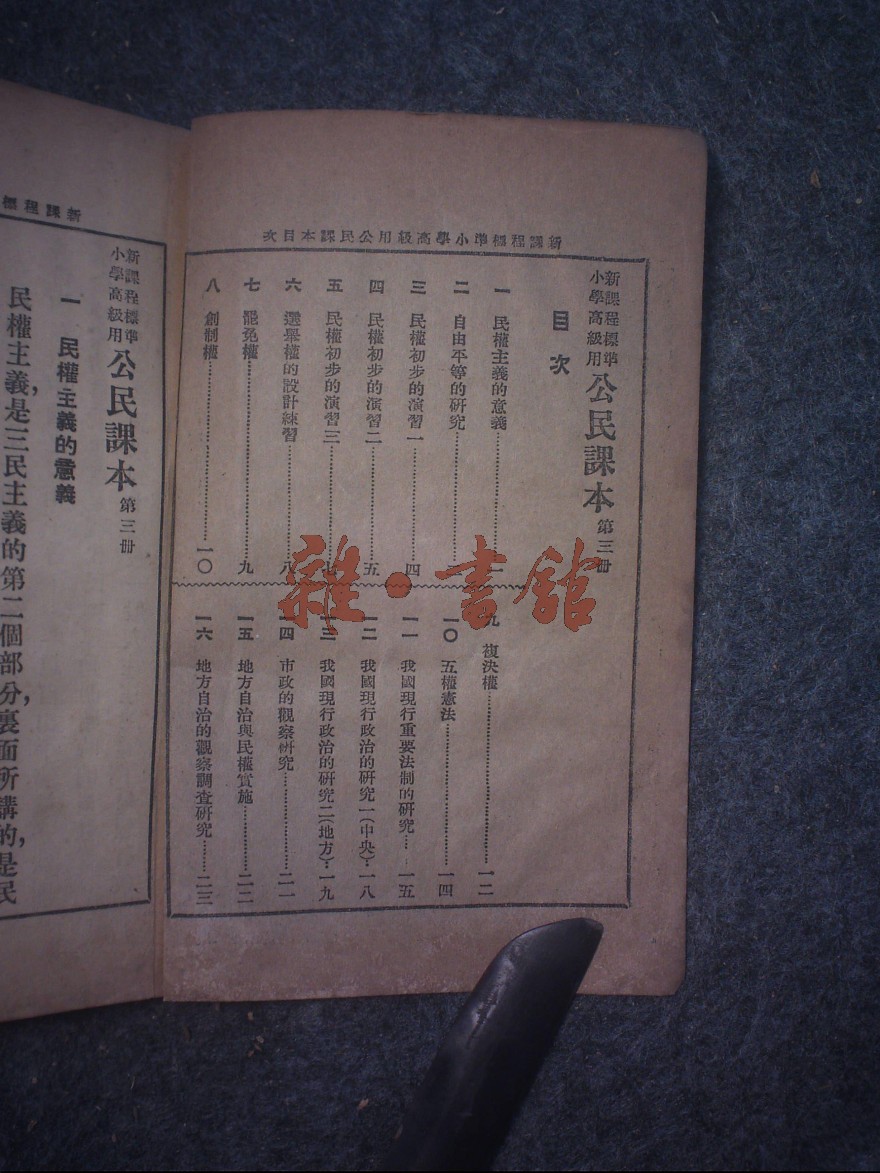 新課程標準小學高級用公民課本目次
新課程標準
小學高級用
公民課本
第三冊
目次
一 民權主義的意義………
二 自由平等的研究………
三 民權初步的演習一………四
四 民權初步的演習二………五
五 民權初步的演習三………七
六 選舉權的設計練習………八
七 罷免權………九
八 創制權………一〇
九 複決權………一二
一〇 五權憲法………一四
一一 我國現行重要法制的研究……一五
一二 我國現行政治的研究一(中央)‧一八
一三 我國現行政治的研究二(地方)‧一九
一四 市政的觀察研究………二一
一五 地方自治與民權實施………二二
一六 地方自治的觀察調查研究………二三
雜·書館
新課程標
新課程標準
小學高級用
公民課本
第三冊
一 民權主義的意義
民權主義,是三民主義的第二個部分,裏面所講的,是民